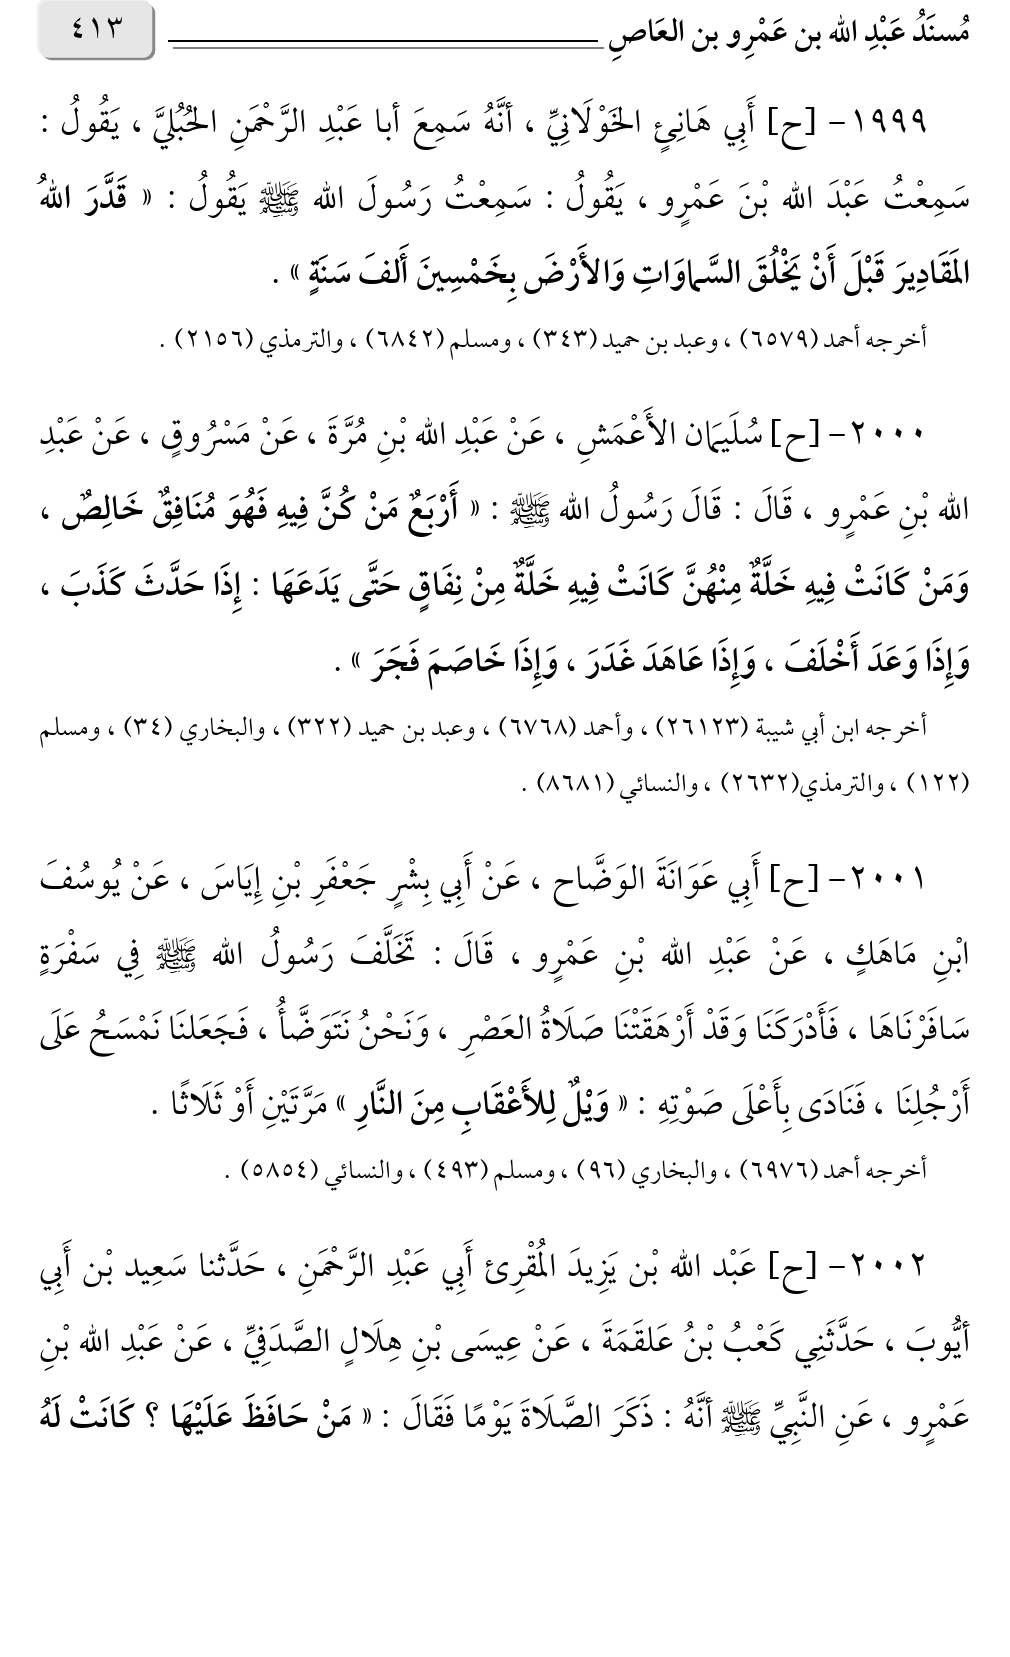 مُسنَدُ عَبْدِ الله بن عَمْرِو بن العَاصِ
٤١٣
١٩٩٩- [ح] أَبِي هَانِئٍ الخَوْلَانِيِّ ، أنَّهُ سَمِعَ أبا عَبْدِ الرَّحْمَنِ الحُبُلِيَّ ، يَقُولُ :
سَمِعْتُ عَبْدَ الله بْنَ عَمْرٍو ، يَقُولُ : سَمِعْتُ رَسُولَ الله ﷺ يَقُولُ : « قَدَّرَ اللهُ
المَقَادِيرَ قَبْلَ أَنْ يَخْلُقَ السَّماوَاتِ وَالأَرْضَ بِخَمْسِينَ أَلفَ سَنَةٍ » .
أخرجه أحمد (٦٥٧٩) ، وعبد بن حميد (٣٤٣) ، ومسلم (٦٨٤٢) ، والترمذي (٢١٥٦) .
٢٠٠٠- [ح] سُلَيمَان الأَعْمَشِ ، عَنْ عَبْدِ الله بْنِ مُرَّةَ ، عَنْ مَسْرُوقٍ ، عَنْ عَبْدِ
الله بْنِ عَمْرٍو ، قَالَ : قَالَ رَسُولُ الله ﷺ : « أَرْبَعٌ مَنْ كُنَّ فِيهِ فَهُوَ مُنَافِقٌ خَالِصٌ ،
وَمَنْ كَانَتْ فِيهِ خَلَّةٌ مِنْهُنَّ كَانَتْ فِيهِ خَلَّةٌ مِنْ نِفَاقٍ حَتَّى يَدَعَهَا : إِذَا حَدَّثَ كَذَبَ ،
وَإِذَا وَعَدَ أَخْلَفَ ، وَإِذَا عَاهَدَ غَدَرَ ، وَإِذَا خَاصَمَ فَجَرَ » .
أخرجه ابن أبي شيبة (٢٦١٢٣) ، وأحمد (٦٧٦٨) ، وعبد بن حميد (٣٢٢) ، والبخاري (٣٤) ، ومسلم
(١٢٢) ، والترمذي(٢٦٣٢) ، والنسائي (٨٦٨١) .
٢٠٠١- [ح] أَبِي عَوَانَةَ الوَضَّاح ، عَنْ أَبِي بِشْرٍ جَعْفَرِ بْنِ إِيَاسَ ، عَنْ يُوسُفَ
ابْنِ مَاهَكٍ ، عَنْ عَبْدِ الله بْنِ عَمْرٍو ، قَالَ : تَخَلَّفَ رَسُولُ الله ﷺ فِي سَفْرَةٍ
سَافَرْنَاهَا ، فَأَدْرَكَنَا وَقَدْ أَرْهَقَتْنَا صَلَاةُ العَصْرِ ، وَنَحْنُ نَتَوَضَّأُ ، فَجَعَلنَا نَمْسَحُ عَلَى
أَرْجُلِنَا ، فَنَادَى بِأَعْلَى صَوْتِهِ : « وَيْلٌ لِلأَعْقَابِ مِنَ النَّارِ » مَرَّتَيْنِ أَوْ ثَلَاثًا .
أخرجه أحمد (٦٩٧٦) ، والبخاري (٩٦) ، ومسلم (٤٩٣) ، والنسائي (٥٨٥٤) .
٢٠٠٢- [ح] عَبْد الله بْن يَزِيدَ المُقْرِئ أَبِي عَبْدِ الرَّحْمَنِ ، حَدَّثنا سَعِيد بْن أَبِي
أيُّوبَ ، حَدَّثَنِي كَعْبُ بْنُ عَلقَمَةَ ، عَنْ عِيسَى بْنِ هِلَالٍ الصَّدَفِيِّ ، عَنْ عَبْدِ الله بْنِ
عَمْرٍو ، عَنِ النَّبِيِّ ﷺ أنَّهُ : ذَكَرَ الصَّلَاةَ يَوْمًا فَقَالَ : « مَنْ حَافَظَ عَلَيْهَا ؟ كَانَتْ لَهُ